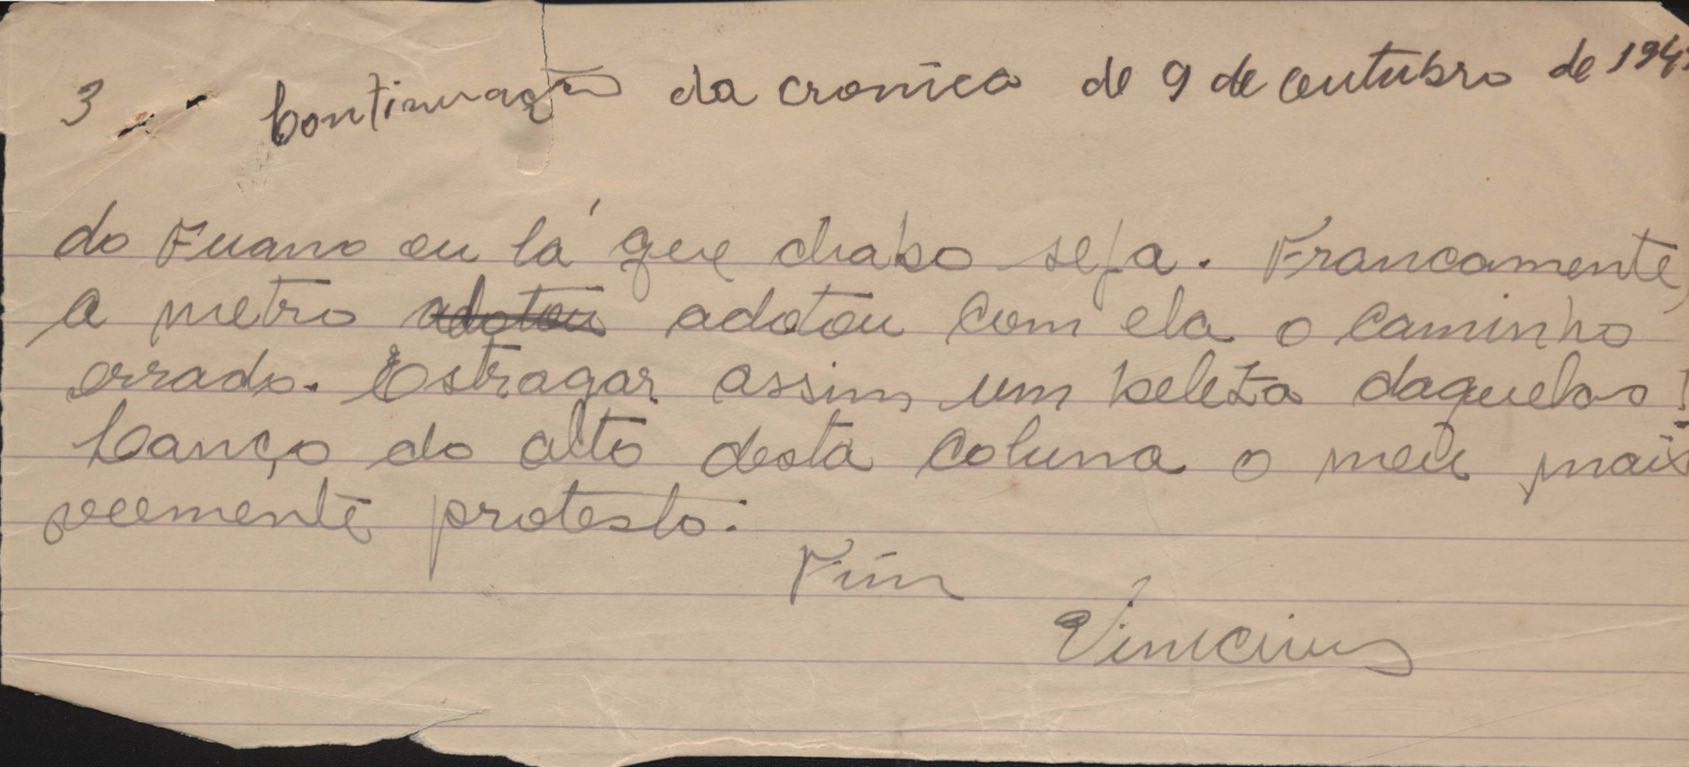 3 - Continuação da cronica de 9 de outubro de 194
do Fuano ou lá que diabo seja. Francamente,
a metro adotou adotou com ela o caminho
errado. Estragar assim um beleza daquelas!
Lanço do alto desta coluna o meu mais
veemente protesto.
Fim
Vinicius